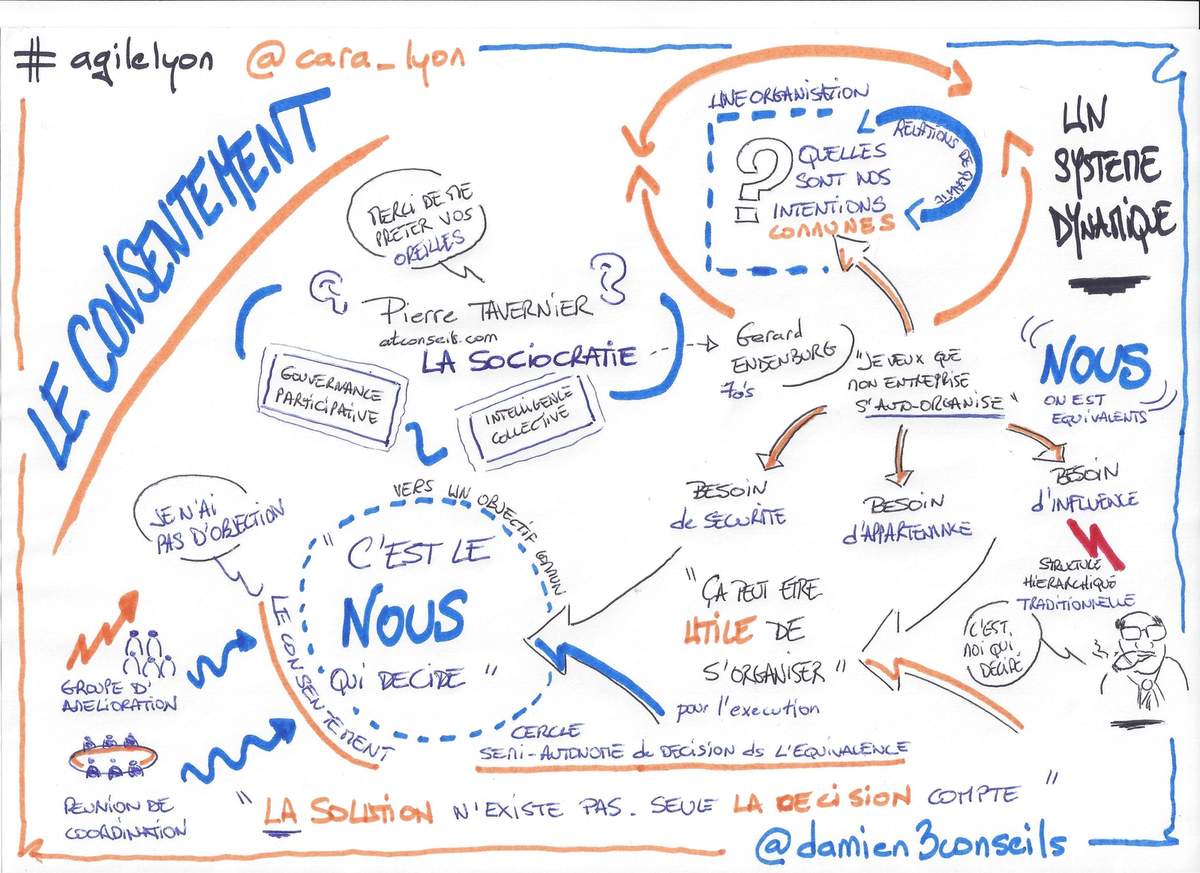 # agilelyon @cara_lyon
LE CONSENTEMENT
MERCI DE ME
PRETER VOS
OREILLES
Pierre TAVERNIER
atconseils.com
LA SOCIOCRATIE
GOUVERNANCE
PARTICIPATIVE
INTELLIGENCE
COLLECTIVE
Gerard
ENDENBURG
70's
UNE ORGANISATION
?
QUELLES
SONT NOS
INTENTIONS
COMMUNES
RELATIONS DE QUALITE
UN
SYSTEME
DYNAMIQUE
"JE VEUX QUE
MON ENTREPRISE
S'AUTO-ORGANISE"
"NOUS
ON EST
EQUIVALENTS"
BESOIN
de SECURITE
BESOIN
d'APPARTENANCE
BESOIN
d'INFLUENCE
STRUCTURE
HIERARCHIQUE
TRADITIONNELLE
C'EST
MOI QUI
DECIDE
JE N'AI
PAS D'OBJECTION
LE CONSENTEMENT
VERS UN OBJECTIF COMMUN
"C'EST LE
NOUS
QUI DECIDE"
"ÇA PEUT ETRE
UTILE DE
S'ORGANISER"
pour l'execution
GROUPE D'
AMELIORATION
REUNION DE
COORDINATION
CERCLE
SEMI-AUTONOME de DECISION ds L'EQUIVALENCE
"LA SOLUTION N'EXISTE PAS. SEULE LA DECISION COMPTE"
@damien3conseils